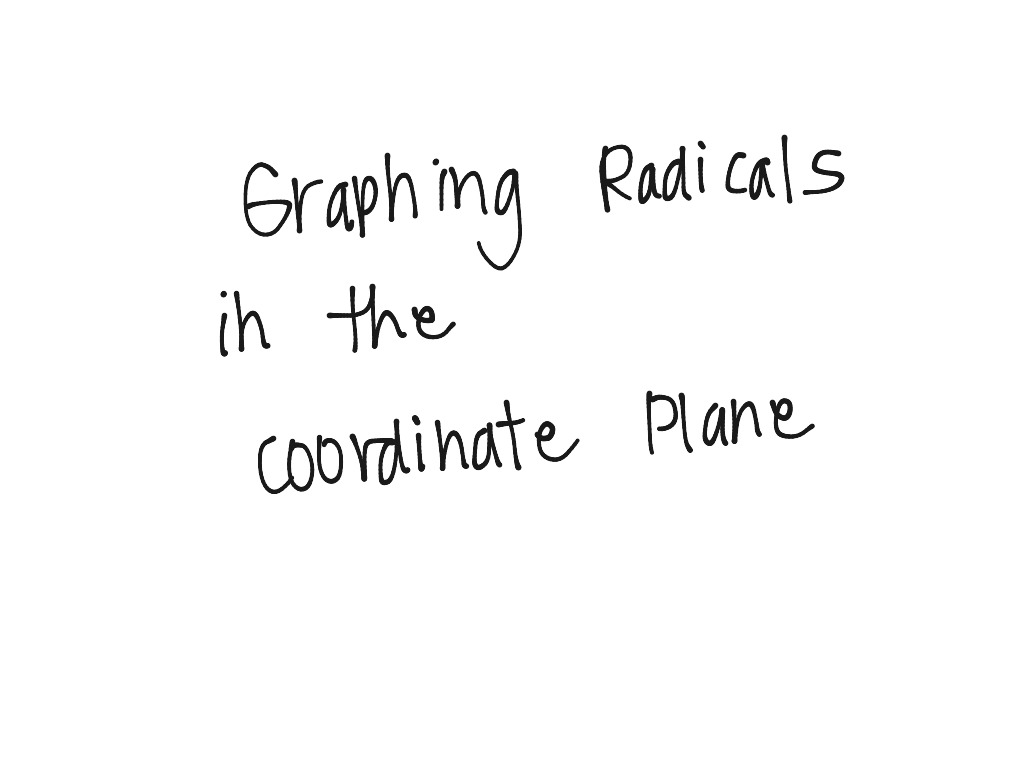 Graphing Radicals
in the
coordinate Plane